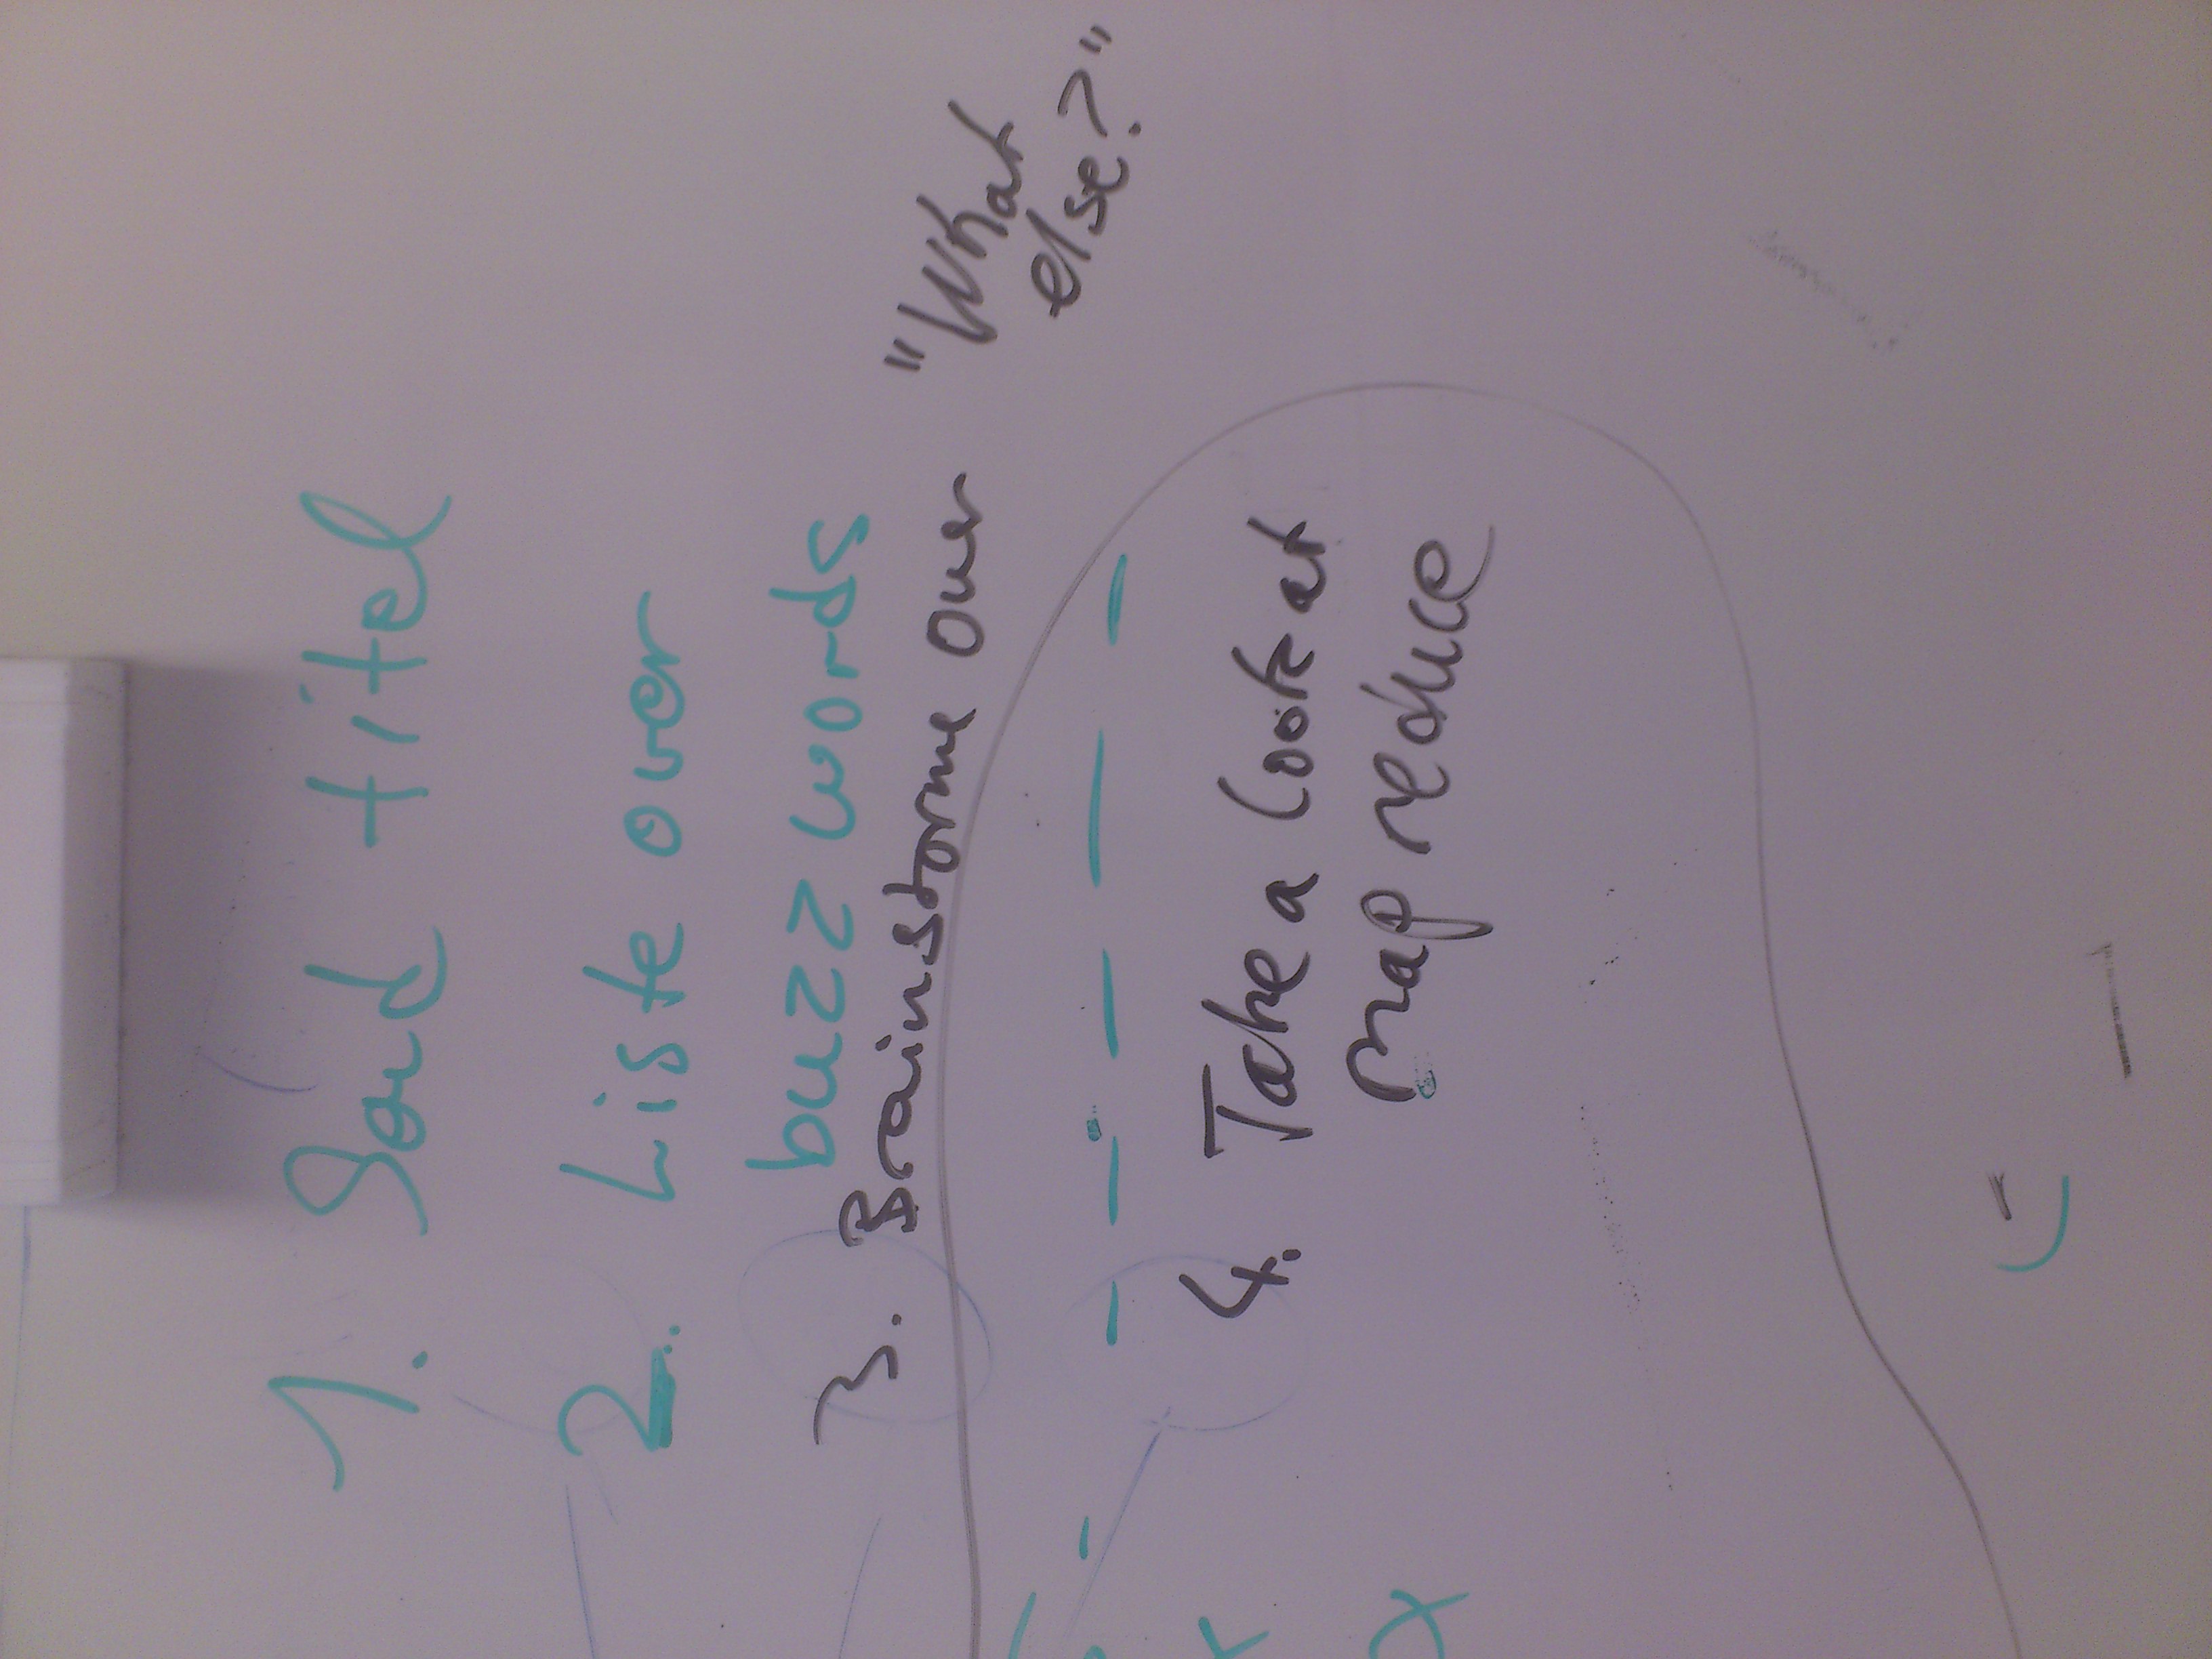 1. Send titel
2. Liste over
buzzwords
3. Brainstorme over "What
else?"
4. Take a look at
map reduce